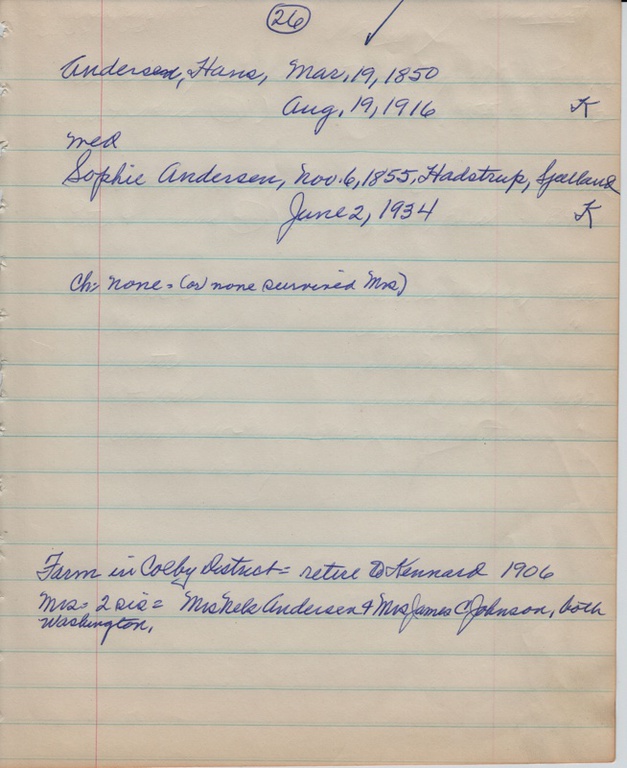 26
Andersen, Hans, Mar, 19, 1850
Aug, 19, 1916 K
med
Sophie Andersen, Nov. 6, 1855, Hadstrup, Sjælland
June 2, 1934 K
Ch: none = (or none survived Mrs)
Farm in Colby District = retire to Kennard 1906
Mrs = 2 sis = Mrs Nels Andersen & Mrs James C Johnson, both
Washington,